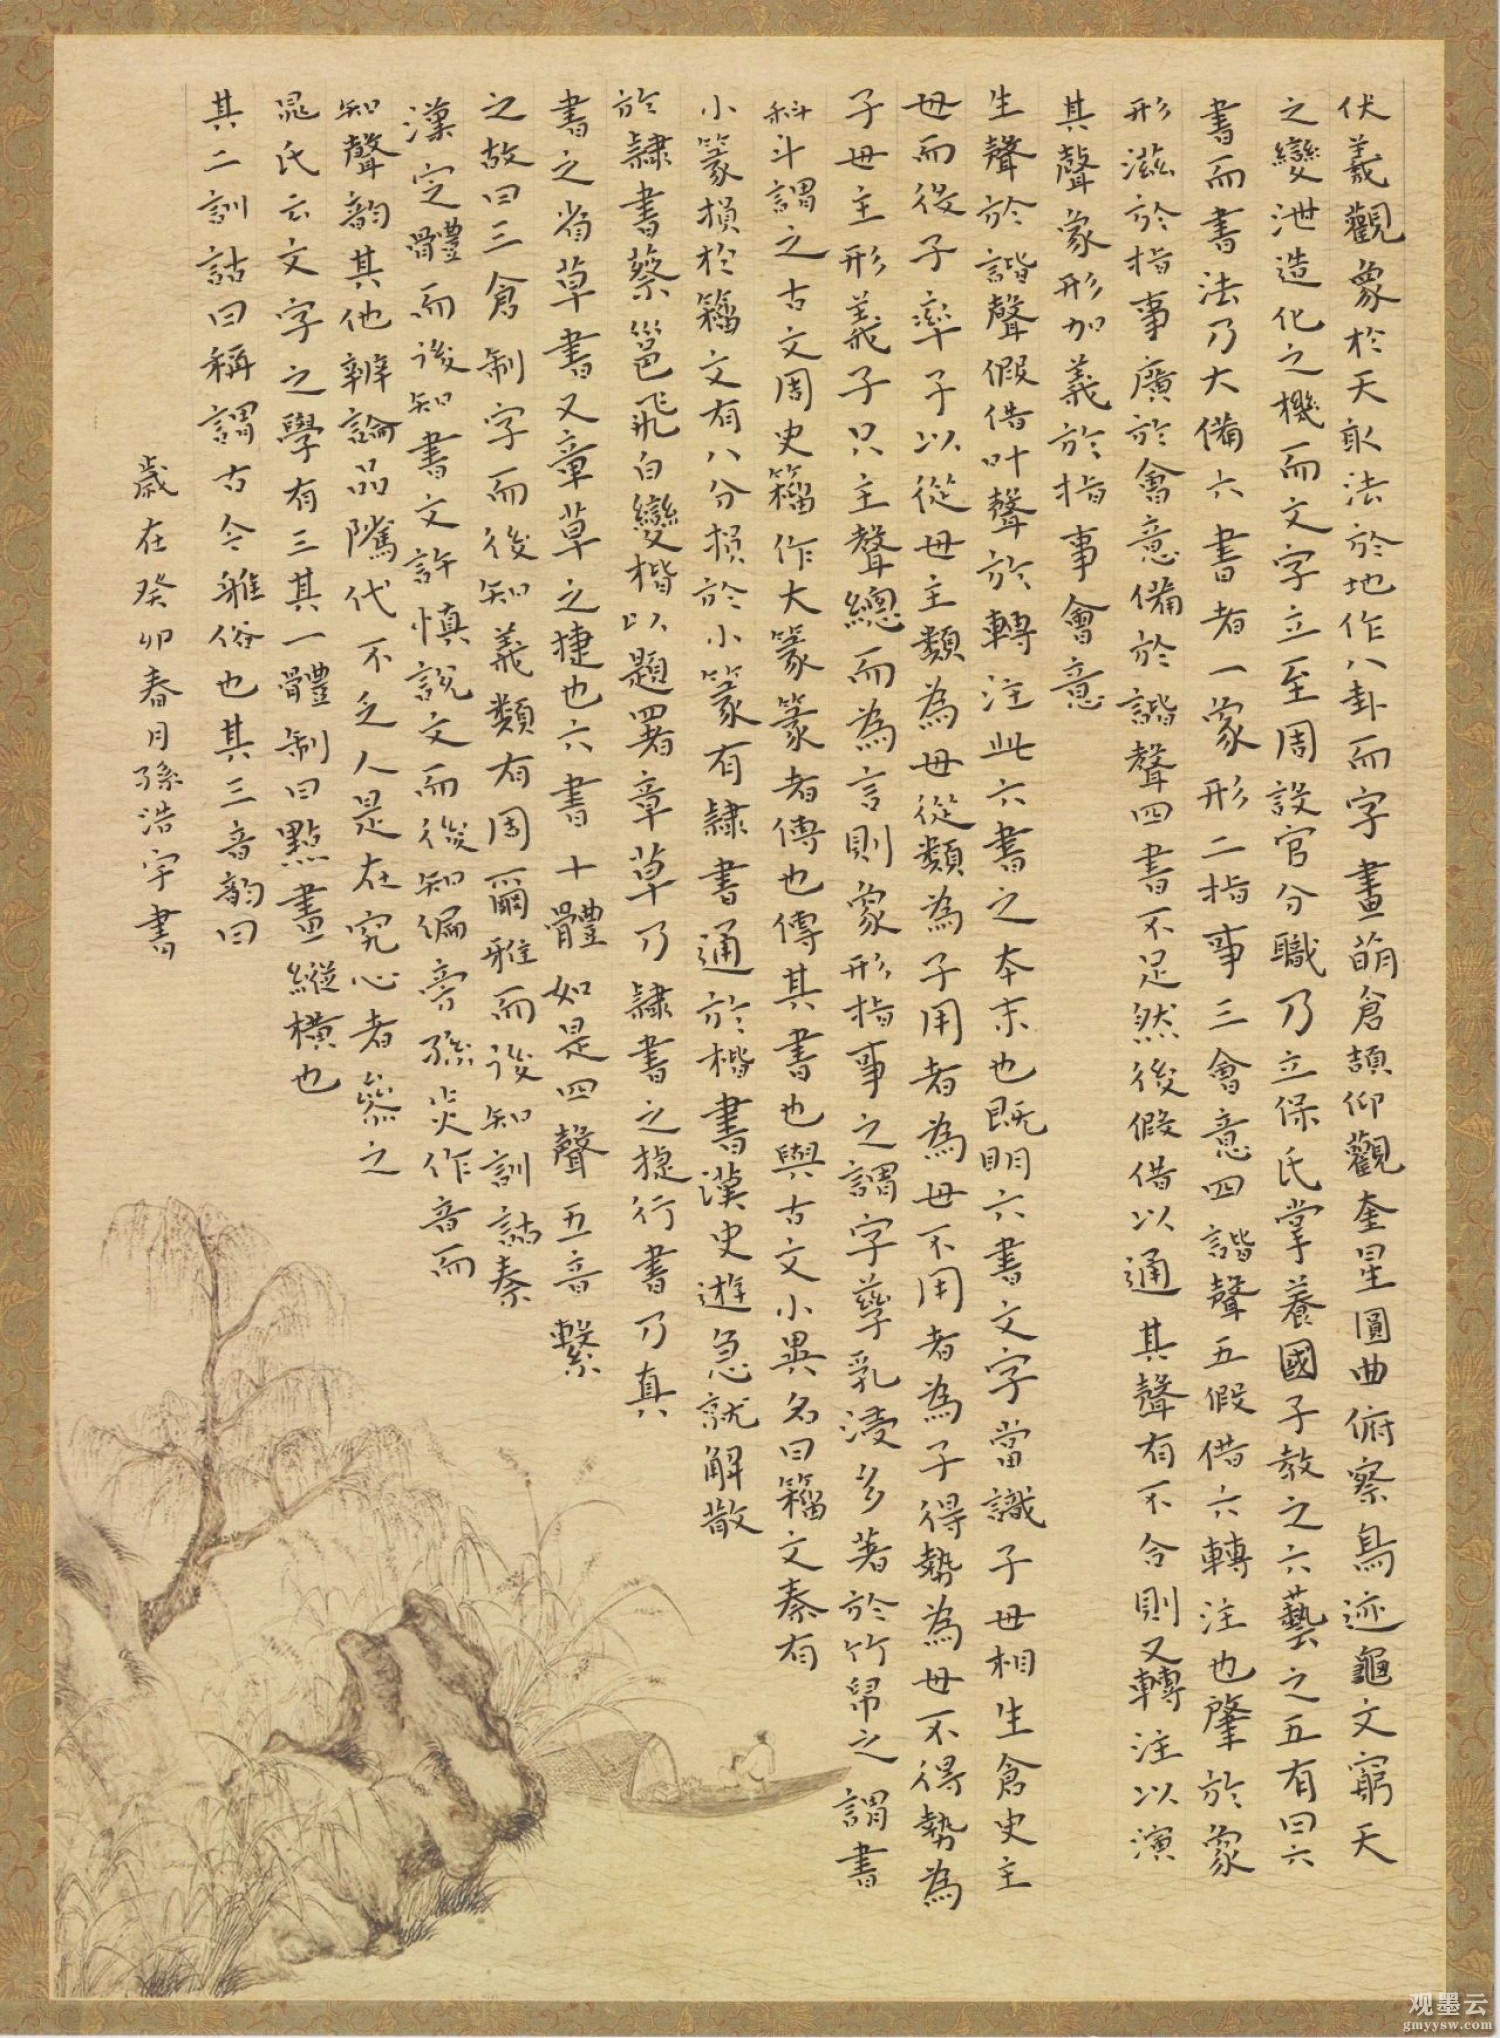 伏羲觀象於天取法於地作八卦而字畫萌倉頡仰觀奎星圓曲俯察鳥迹龜文窮天
之變泄造化之機而文字立至周設官分職乃立保氏掌養國子教之六藝之五有曰六
書而書法乃大備六書者一象形二指事三會意四諧聲五假借六轉注也肇於象
形滋於指事廣於會意備於諧聲四書不足然後假借以通其聲有不合則又轉注以演
其聲象形加義於指事會意
生聲於諧聲假借叶聲於轉注此六書之本末也既明六書文字當識子母相生倉史主
母而役子率子以從母主類為母從類為子用者為母不用者為子得勢為母不得勢為
子母主形義子只主聲總而為言則象形指事之謂字孳乳浸多著於竹帛之謂書
科斗謂之古文周史籀作大篆篆者傳也傳其書也與古文小異名曰籀文秦有
小篆損於籀文有八分損於小篆有隸書通於楷書漢史遊急就解散
於隸書蔡邕飛白變楷以題署章草乃隸書之捷行書乃真
書之省草書又章草之捷也六書十體如是四聲五音繫
之故曰三倉制字而後知義類有周爾雅而後知訓詁秦
漢定體而後知書文許慎說文而後知偏旁孫炎作音而
知聲韵其他辨論品隲代不乏人是在究心者參之
晁氏云文字之學有三其一體制曰點畫縱橫也
其二訓詁曰稱謂古今雅俗也其三音韵曰
歲在癸卯春月孫浩宇書
观墨云
gmyysw.com